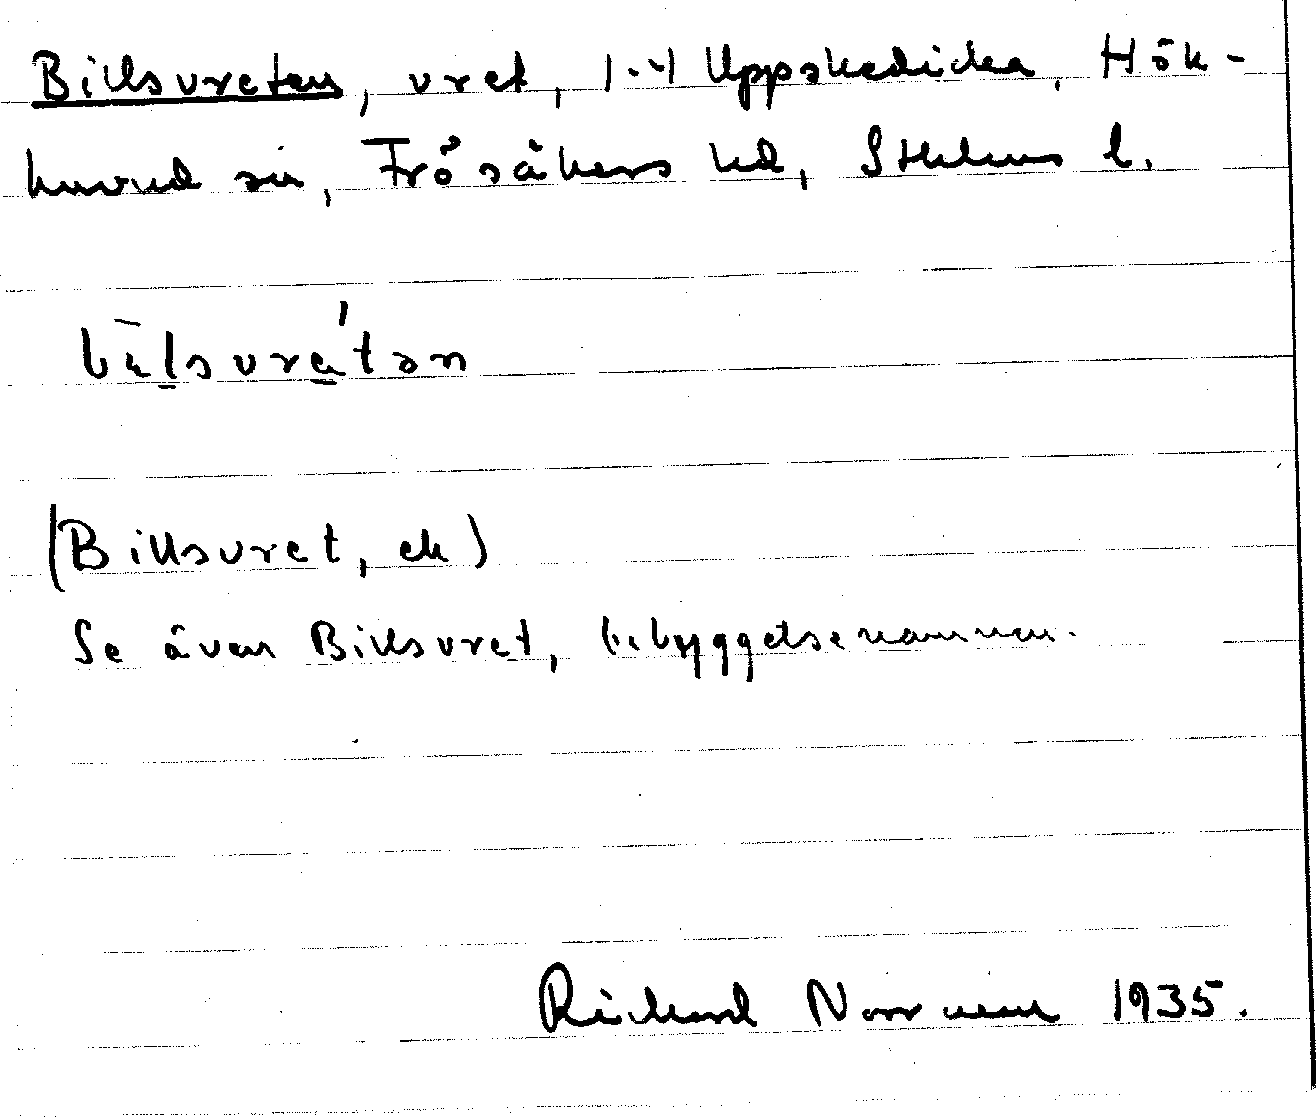 Billsvreten, vret, 1-4 Uppskedicka, Hök-
huvud sn, Frösåkers hd, Sthlms l.
(Billsvret, ek)
Se även Billsvret, bebyggelsenamnen.
Richard Norrman 1935.